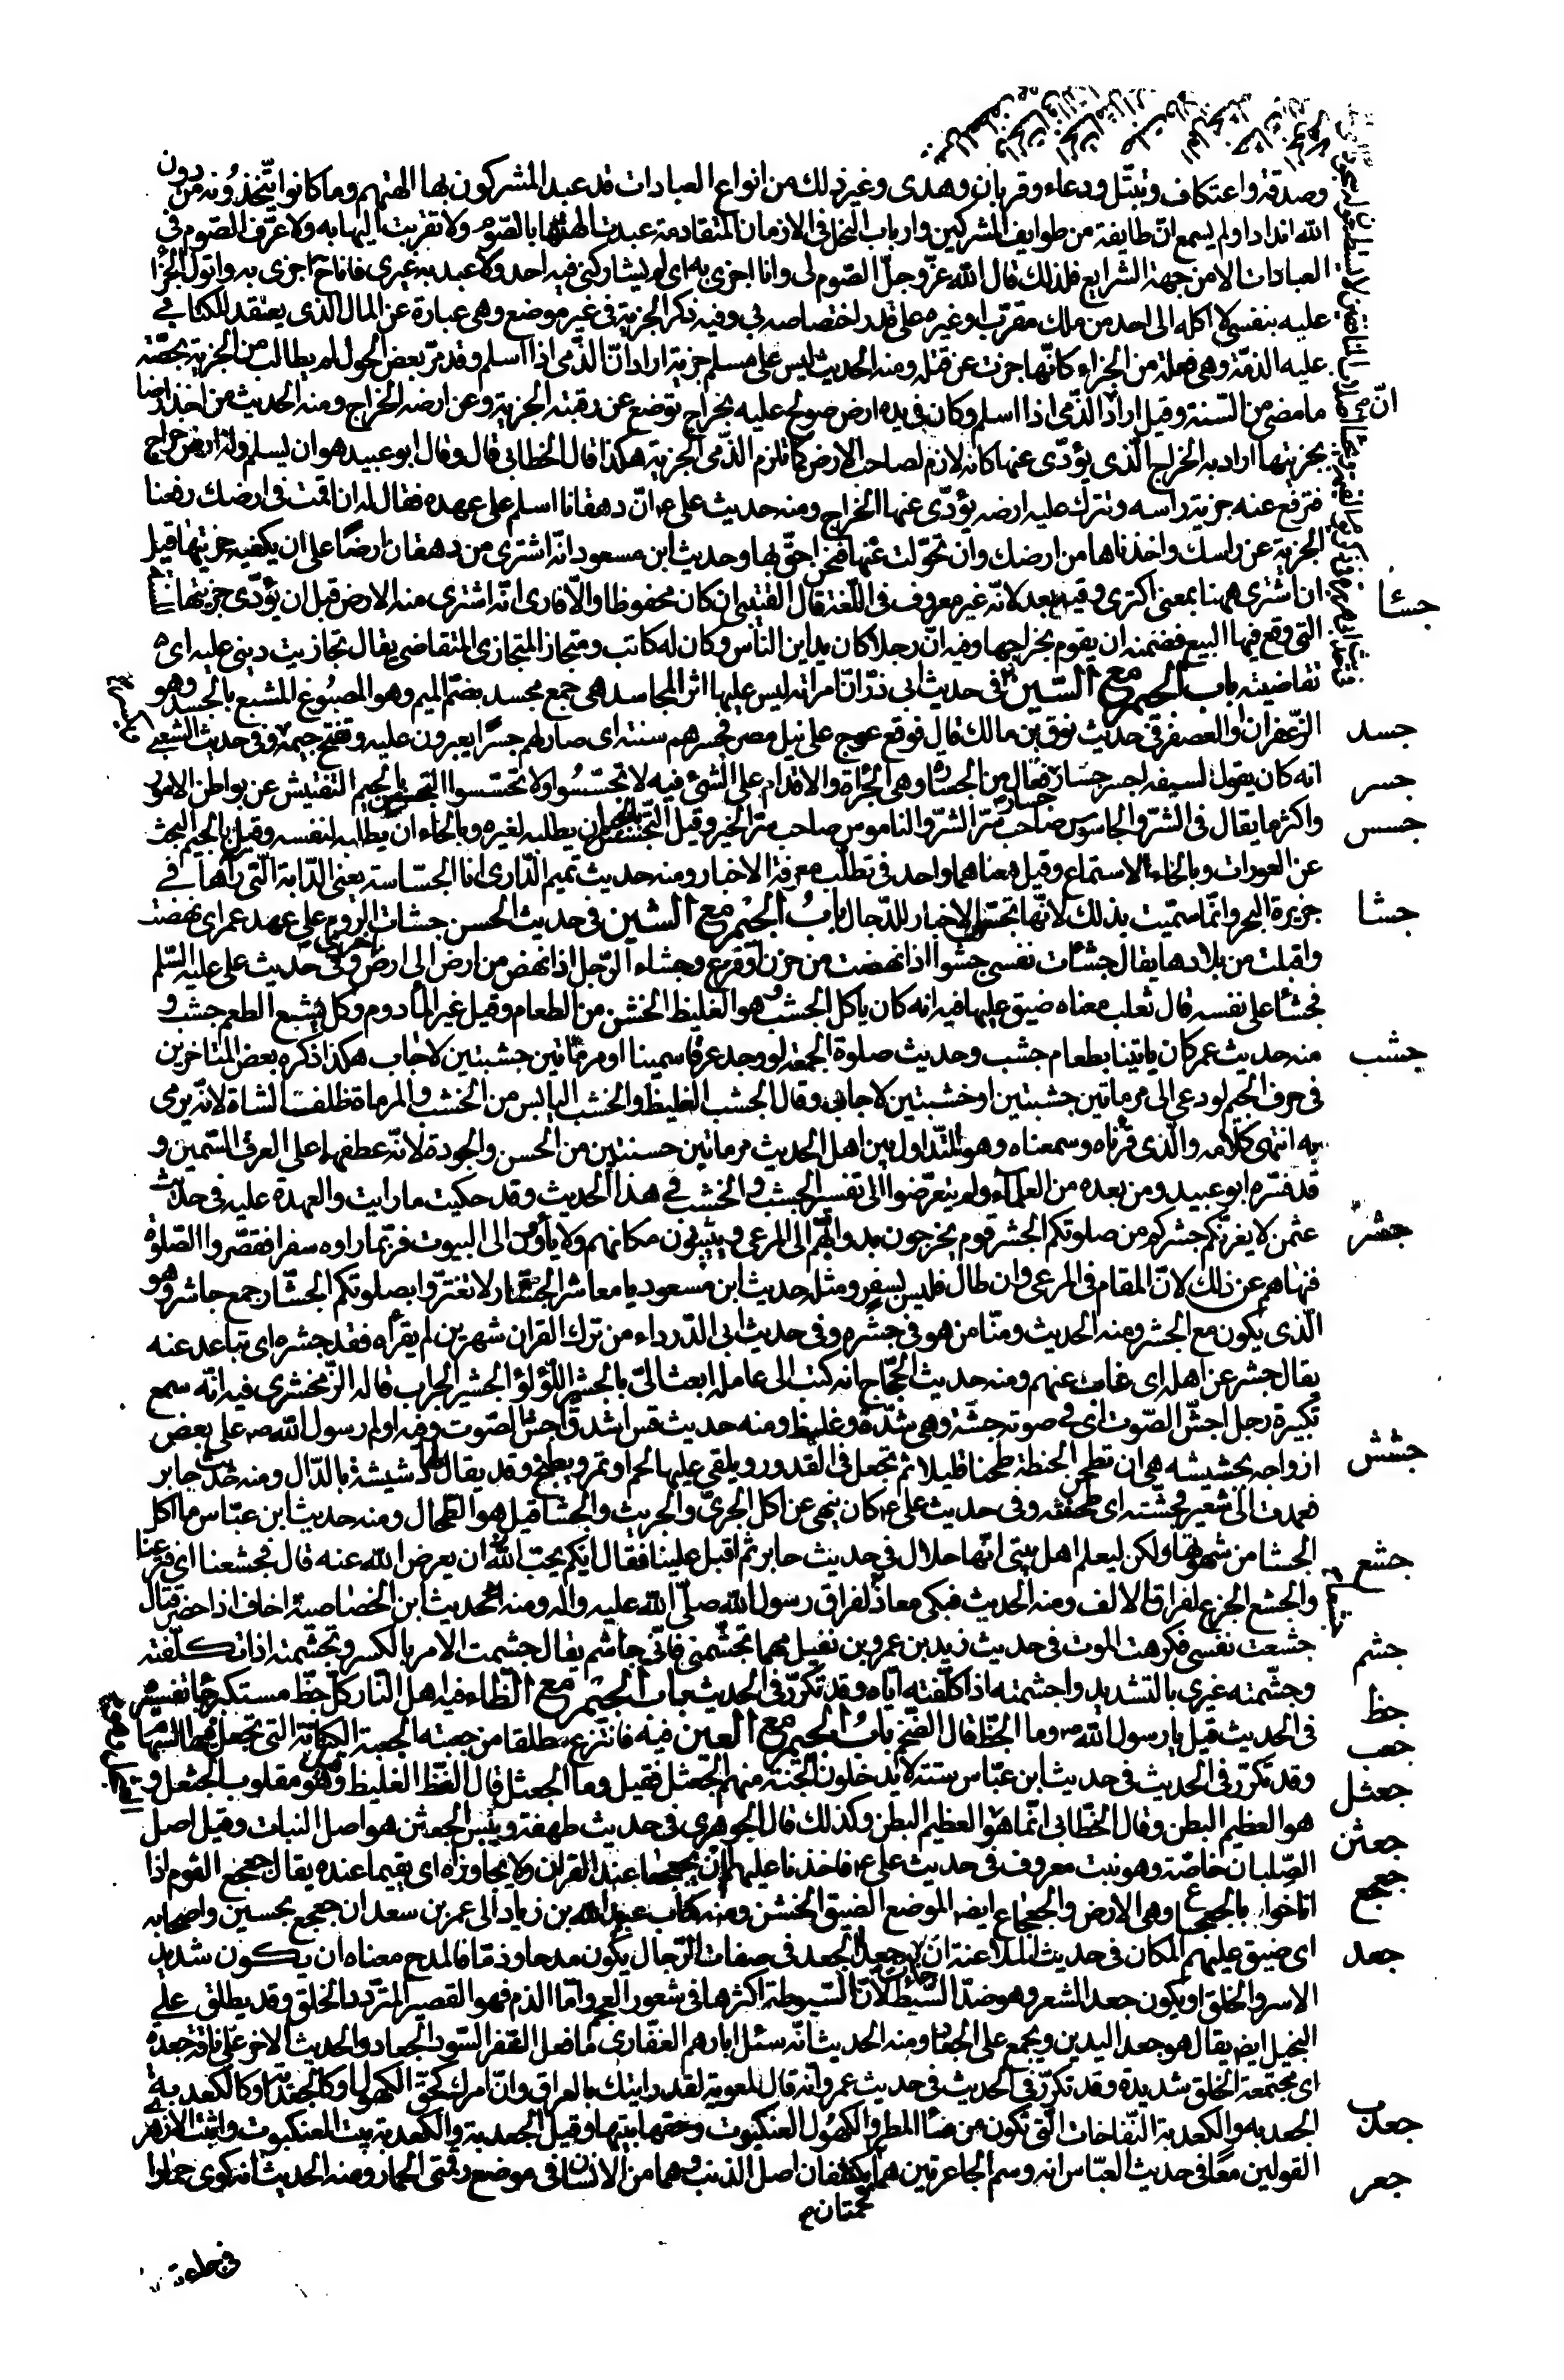 وصدقة واعتكاف وتبتّل ودعاء وقربان وهدى وغير ذلك من انواع العبادات قد عبد المشركون بها الهتهم وما كانوا يتّخذونه من دون
الله اندادا ولم يسمع انّ طايفة من طوايف المشركين وارباب النحل فى الازمان المتقادمة عبدت الهتها بالصّوم ولا تقربت اليها به ولا عرّف الصّوم فى
العبادات الا من جهة الشرايع فلذلك قال الله عزّ وجلّ الصّوم لى وانا اجزى به اى لم يشاركنى فيه احد ولا عبد به غيرى فانا ح اجزى به واتولّى الجزا
عليه بنفسى لا اكله الى احد من ملك مقرّب او غيره على قدر اختصاصه بى وفيه ذكر الجزية فى غير موضع وهى عبارة عن المال الذى يعتقد للكتابى
عليه الذمّة وهى فعلة من الجزاء كانّها جزت عن قتله ومنه الحديث ليس على مسلم جزية اراد انّ الذّمى اذا اسلم وقد مرّ بعض الحول لم يطالب من الجزية بحصّة
ما مضى من السّنة وقيل اراد انّ الذّمى اذا اسلم وكان فى يده ارض صولح عليه بخراج توضع عن رقبته الجزية وعن ارضه الخراج ومنه الحديث من اخذ ارضا
بجزيتها اراد به الخراج الّذى يؤدّى عنها كانه لازم لصاحب الارض كما تلزم الذّمى الجزية هكذا قال الخطابى قال وقال ابو عبيد هو ان يسلم وله ارض خراج
فترفع عنه جزية راسه وتترك عليه ارضه يؤدّى عنها الخراج ومنه حديث على ع انّ دهقانا اسلم على عهده فقال له ان اقمت فى ارضك رفعنا
الجزية عن راسك واخذناها من ارضك وان تحوّلت عنها فنحن احقّ بها وحديث ابن مسعود انّه اشترى من دهقان ارضًا على ان يكفيه جزيتها قيل
ان اشترى ههنا بمعنى اكترى وفيه بعد لانّه غير معروف فى اللّغة قال القتيبى ان كان محفوظا والّا فارى انّه اشترى منه الارض قبل ان يؤدّى جزيتها
التى وقع فيها البيع فضمنه ان يقوم بخراجها وفيه انّ رجلا كان يداين النّاس وكان له كاتب ومتجاز المتجازى المتقاضى يقال تجازيت دينى عليه اى
تقاضيته باب الجيم مع السّين فى حديث ابى ذرّ انّ امراته ليس عليها اثر المجاسد هى جمع مجسد بضمّ الميم وهو المصبوغ المشبع بالجسد وهو
جسد الزّعفران او العصفر فى حديث نوف بن مالك قال فوقع عوج على نيل مصر فجسرهم سنة اى صار لهم جسرًا يعبرون عليه وتفتح جيمه وفى حديث الشعبى
جسر انه كان يقول لسيفه اجسر جسّار فعّال من الجسارة وهى الجراة والاقدام على الشىء فيه لا تحسّسوا ولا تجسّسوا التجسّس بالجيم التفتيش عن بواطن الامور
جسس واكثر ما يقال فى الشرّ والجاسوس صاحب سرّ الشرّ والناموس صاحب سرّ الخير وقيل التّجسّس بالجيم ان يطلبه لغيره وبالحاء ان يطلبه لنفسه وقيل بالجيم البحث
عن العورات وبالحاء الاستماع وقيل معناهما واحد فى تطلّب معرفة الاخبار ومنه حديث تميم الدّارى انا الجسّاسة يعنى الدّابة الّتى رآها فى
جشا جزيرة البحر وانّما سمّيت بذلك لانّها تجسّ الاخبار للدّجال باب الجيم مع الشين فى حديث الحسن جشات الروم على عهد عمر اى نهضت
واقبلت من بلادها يقال جشات نفسى جشوا اذا نهضت من حزن او فزع وجشاء الرّجل اذا نهض من ارض الى ارض اخرى وفى حديث على عليه السّلم
فجشا على نفسه قال ثعلب معناه ضيق عليها فيه انه كان ياكل الجشب هو الغليظ الخشن من الطعام وقيل غير المأدوم وكلّ بشع الطعم جشب و
جشب منه حديث عمر كان ياتينا بطعام جشب وحديث صلوة الجمعة لو وجد عرقا سمينا او مرماتين جشبتين لاجاب هكذا ذكره بعض المتاخرين
فى حرف الجيم لو دعى الى مرماتين جشبتين او خشبتين لاجاب وقال الجشب الغليظ والخشب اليابس من الخشب والمرماة ظلف الشاة لانّه يرمى
به انتهى كلامه والّذى قرأناه وسمعناه وهو المتداول بين اهل الحديث مرماتين حسنتين من الحسن والجودة لانّه عطفهما على العرق السّمين و
قد فسّره ابو عبيد ومن بعده من العلماء ولم يتعرّضوا الى تفسير الجشب والخشب فى هذا الحديث وقد حكيت ما رايت والعهدة عليه فى حديث
جشر عثمن لا يغرنّكم جشركم من صلوتكم الجشر قوم يخرجون بدوابّهم الى المرعى ويبيتون مكانهم ولا يأوون الى البيوت فربّما راوه سفرا فقصّروا الصّلوة
فنهاهم عن ذلك لانّ المقام فى المرعى وان طال فليس بسفر ومثله حديث ابن مسعود يا معاشر الجشّار لا تغترّوا بصلوتكم الجشّار جمع جاشر وهو
الّذى يكون مع الجشر ومنه الحديث ومنّا من هو فى جشره وفى حديث ابى الدّرداء من ترك القران شهرين لم يقراه فقد جشره اى تباعد عنه
يقال جشر عن اهله اى غاب عنهم ومنه حديث الحجّاج انه كتب الى عامله ابعث الىّ بالجشير اللّؤلؤ الجشير الجراب قاله الزّمخشرى فيه انّه سمع
تكبيرة رجل اجشّ الصّوت اى فى صوته جشّة وهى شدّة وغلظ ومنه حديث قس اشدق اجشّ الصّوت وفيه اولم رسول الله ص على بعض
جشش ازواجه بجشيشة هى ان تطحن الحنطة طحنا قليلا ثم تجعل فى القدور ويلقى عليها لحم او تمر ويطبخ وقد يقال لها دشيشة بالدّال ومنه حديث جابر
فعمدت الى شعير فجشّته اى طحنته وفى حديث على ع كان ينهى عن اكل الجرىّ والجريث والجشا قيل هو الطّحال ومنه حديث ابن عبّاس ما اكل
جشع الجشا من شهوتها ولكن ليعلم اهل بيتى انّها حلال فى حديث جابر ثم اقبل علينا فقال ايّكم يحبّ ان يعرض الله عنه قال فجشعنا اى فزعنا
والجشع الجزع لفراق الالف ومنه الحديث فبكى معاذ لفراق رسول الله صلّى الله عليه واله ومنه حديث ابن الخصاصية اخاف اذا حضر قتال
جشم جشعت نفسى فكرهت الموت فى حديث زيد بن عمرو بن نفيل مهما تجشّمنى فانّى جاشم يقال جشمت الامر بالكسر وتجشّمته اذا تكلّفته
وجشّمته غيرى بالتشديد واجشمته اذا كلّفته ايّاه وقد تكرّر فى الحديث باب الجيم مع الظاء فيه اهل النّار كلّ جظّ مستكبر جا تفسيره
جظ فى الحديث قيل يا رسول الله ص وما الجظّ قال الضّخم باب الجيم مع العين فيه فانتزع طلقا من جعبته الجعبة الكنانة التى تجعل فيها السّهام
جعب وقد تكرّر فى الحديث فى حديث ابن عبّاس ستة لا يدخلون الجنّة منهم الجعثل فقيل وما الجعثل قال الفظّ الغليظ وهو مقلوب الجثعل و
جعثل هو العظيم البطن وقال الخطّابى انّما هو العظيم البطن وكذلك قال الجوهرى فى حديث طهفة ويبس الجعثن هو اصل النبات وقيل اصل
جعثن الصّلّيان خاصّة وهو نبت معروف فى حديث على ع فاخذنا عليهما ان يجعجعا عند القران ولا يجاوزاه اى يقيما عنده يقال جعجع القوم اذا
جعجع اناخوا بالجعجاع وهى الارض والجعجاع ايضا الموضع الضيق الخشن ومنه كتاب عبيد الله بن زياد الى عمر بن سعد ان جعجع بحسين واصحابه
جعد اى ضيق عليهم المكان فى حديث الملاعنة ان جاءت به جعدا الجعد فى صفات الرّجال يكون مدحا وذمّا فالمدح معناه ان يكون شديد
الاسر والخلق او يكون جعد الشعر وهو ضدّ السّبط لانّ السّبوطة اكثرها فى شعور العجم وامّا الذم فهو القصير المتردّد الخلق وقد يطلق على
البخيل ايضا يقال هو جعد اليدين ويجمع على الجعاد ومنه الحديث انّه سئل ابا رهم الغفّارى ما فعل النفر السّود الجعاد والحديث الاخر على ناقة جعدة
اى مجتمعة الخلق شديدة وقد تكرّر فى الحديث فى حديث عمرو انّه قال لمعوية لقد رايتك بالعراق وانّ امرك كحقّ الكهول او كالجعدبة او كالكعدبة
جعدب الجعدبة والكعدبة النّفاخات الّتى تكون من ماء المطر والكهول العنكبوت وحقّها بيتها وقيل الجعدبة والكعدبة بيت العنكبوت واثبت الازهرى
جعر القولين معًا فى حديث العبّاس انه وسم الجاعرتين هما لحمتان يكتنفان اصل الذنب وهما من الانسان فى موضع رقمتى الحمار ومنه الحديث انه كوى حمارا
فى جاعرته